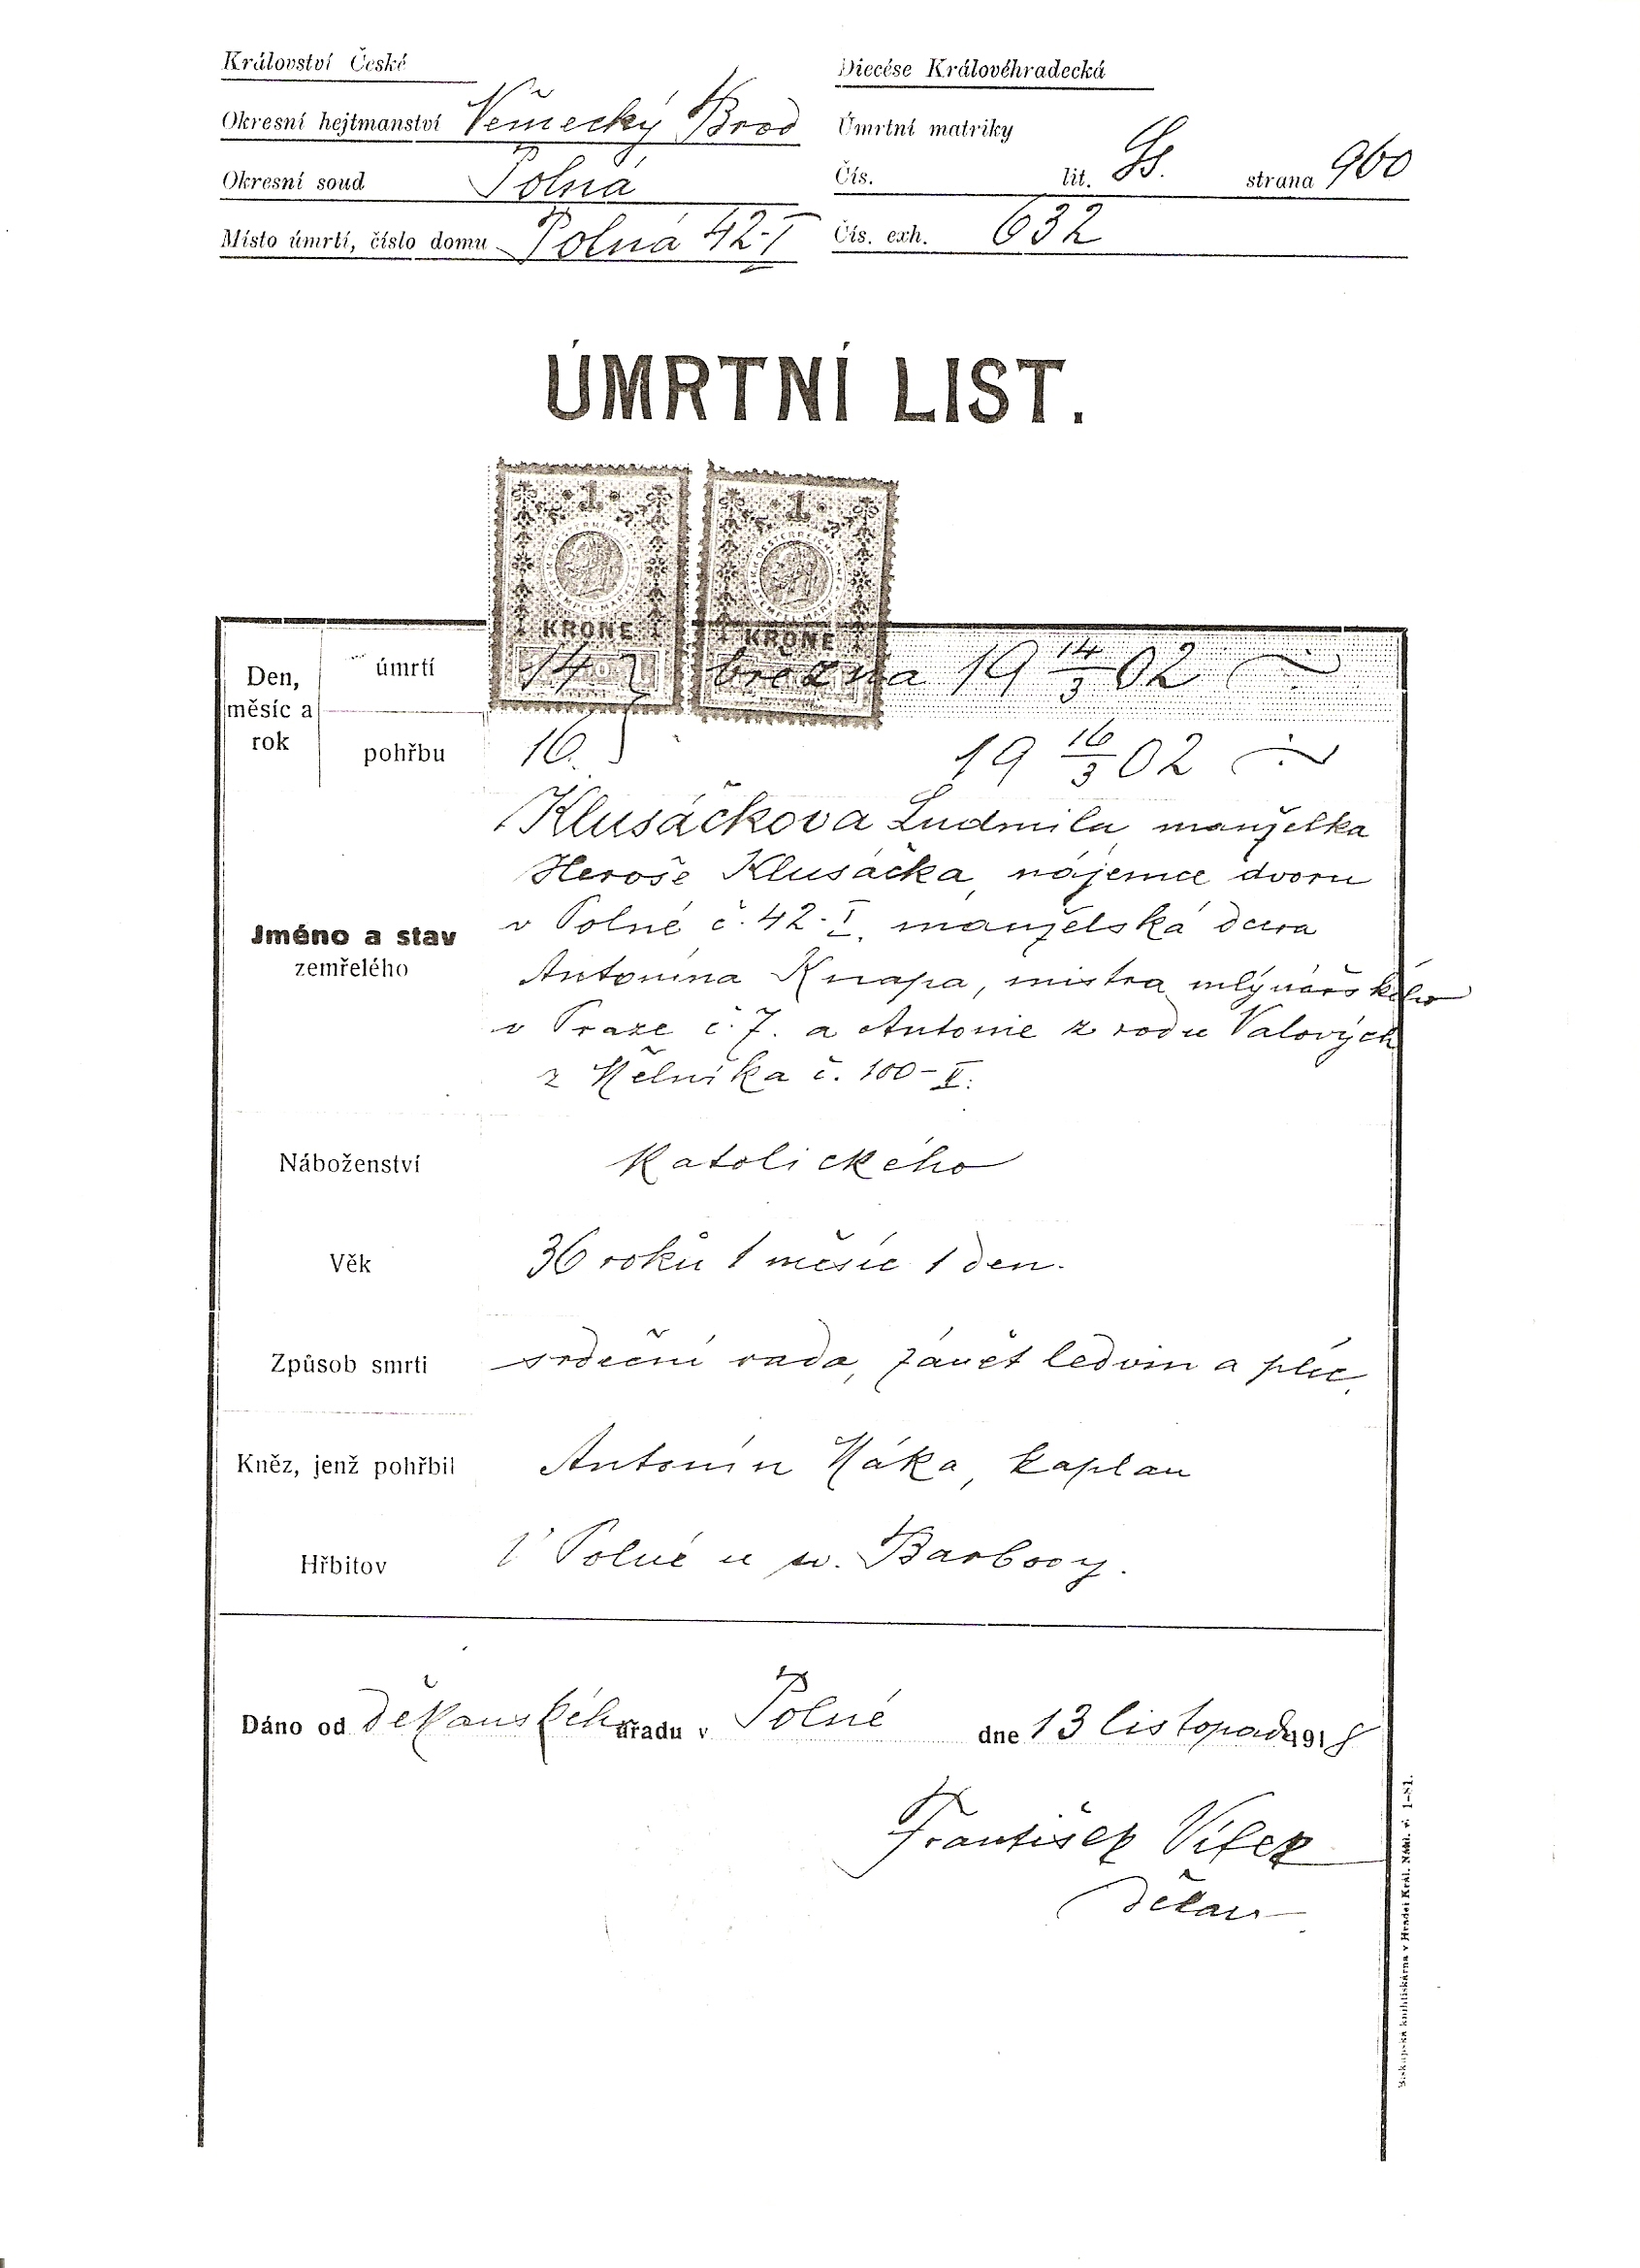 Království České
Okresní hejtmanství Německý Brod
Okresní soud Polná
Místo úmrtí, číslo domu Polná 42-I
Diecése Královéhradecká
Úmrtní matriky
Čís. lit. strana 960
Čís. exh. 632
ÚMRTNÍ LIST.
1 KRONE
1 KRONE
Den, měsíc a rok
úmrtí 14 března 19 14/3 02
pohřbu 16. 19 16/3 02
Jméno a stav
zemřelého
Klusáčkova Ludmila, manželka
Heroše Klusáčka, nájemce dvoru
v Polné č. 42-I. manželská dcera
Antonína Knapa, mistra mlynářského
v Praze č. 7. a Antonie z rodu Valových
z Mělníka č. 100-II.
Náboženství Katolického
Věk 36 roků 1 měsíc 1 den.
Způsob smrti srdeční vada, zánět ledvin a plic.
Kněz, jenž pohřbil Antonín Máka, kaplan
Hřbitov V Polné u sv. Barbory.
Dáno od děkanského úřadu v Polné dne 13 listopadu 1918
František Vítek
děkan
Biskupská knihtiskárna v Hradci Král. Nákl. vl. 1-81.